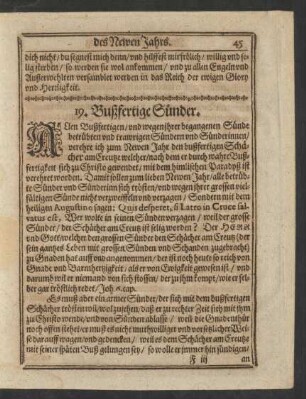 des Newen Jahrs. 45
dich nicht / du segnest mich denn / und hilffest mir frölich / willig und se-
lig sterben / so werden sie wol ankommen / und zu allen Engeln und
Außerwehlten versamblet werden in das Reich der ewigen Glory
und Herrligkeit.
19. Bußfertige Sünder.
ALlen Bußfertigen / und wegen ihrer begangenen Sünde
betrübten und traurigen Sündern und Sünderinnen /
verehre ich zum Newen Jahr den bußfertigen Schä-
cher am Creutz welcher / nach dem er durch wahre Buß-
fertigkeit sich zu Christo gewendet / mit dem himlischen Paradyß ist
verehret worden. Damit sollen zum lieben Newen Jahr / alle betrüb-
te Sünder und Sünderinn sich trösten / und wegen ihrer grossen viel-
fältigen Sünde nicht verzweiffeln noch verzagen / Sondern mit dem
heiligen Augustino sagen: Quis desperet, si Latro in Cruce sal-
vatus est, Wer wolte in seinen Sünden verzagen / weil der grosse
Sünder / der Schächer am Creutz ist selig worden? Der HErr
und Gott / welcher den grossen Sünder den Schächer am Creutz (der
sein gantzes Leben mit grossen Sünden und Schanden zugebracht)
zu Gnaden hat auff und angenommen / der ist noch heute so reich von
Gnade und Barmhertzigkeit / als er von Ewigkeit gewesen ist / und
darumb wil er niemand von sich stossen / der zu jhm kompt / wie er sel-
ber gar tröstlich redet / Joh. 6. cap.
Es muß aber ein armer Sünder / der sich mit dem bußfertigen
Schächer trösten wil / wol zusehen / daß er zu rechter Zeit sich mit jhm
zu Christo wende / und von Sünden ablasse / weil die Gnadenthür
noch offen stehet / er muß es nicht muthwilliger und vorsetzlicher Wei-
se darauff wagen / und gedencken / weil es dem Schächer am Creutze
mit seiner späten Buß gelungen sey / so wolle er immer hin sündigen /
F iij an